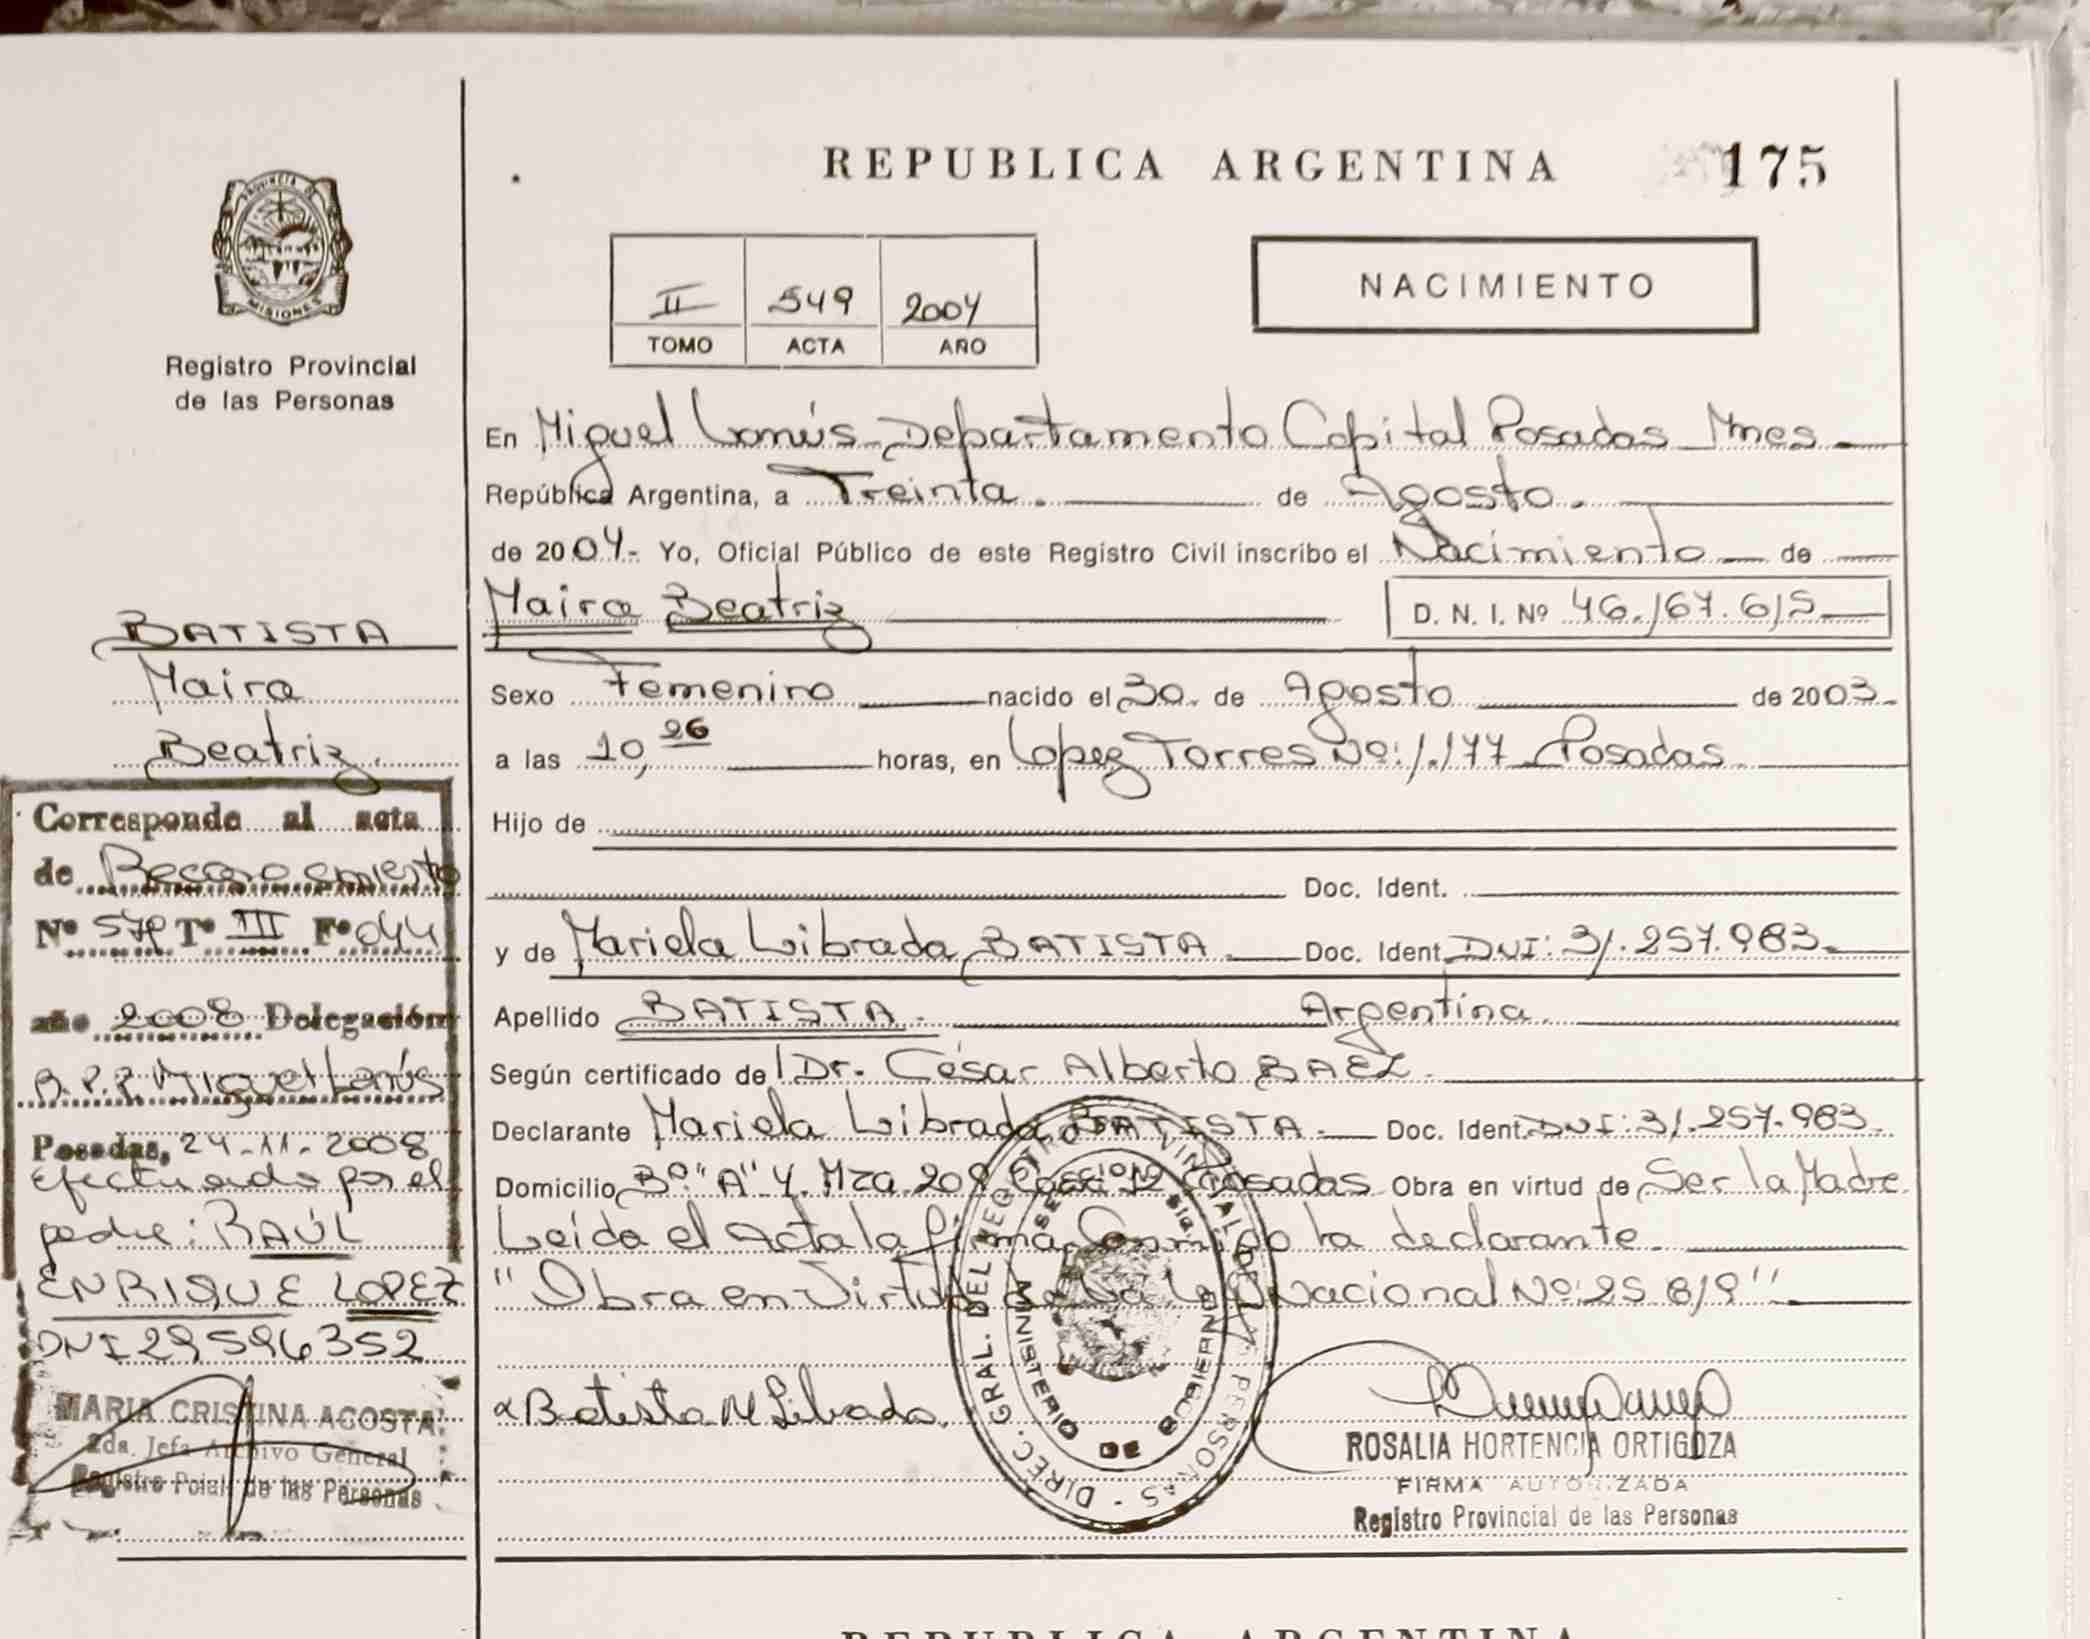 REPUBLICA ARGENTINA
175
PROVINCIA DE
MISIONES
Registro Provincial
de las Personas
II 549 2004
TOMO ACTA AÑO
NACIMIENTO
En Miguel Lanús Departamento Capital Posadas Mnes
República Argentina, a Treinta. de Agosto.
de 2004.- Yo, Oficial Público de este Registro Civil inscribo el Nacimiento de
Maira Beatriz D. N. I. Nº 46.167.615
Sexo Femenino nacido el 30. de Agosto de 2003.-
a las 10,26 horas, en Lopez Torres Nº: 1.177 Posadas.
Hijo de
Doc. Ident.
y de Mariela Librada BATISTA. Doc. Ident. DNI: 31.257.983.
Apellido BATISTA. Argentina.
Según certificado de Dr. César Alberto BAEZ.
Declarante Mariela Librada BATISTA. Doc. Ident. DNI: 31.257.983.
Domicilio Bº "A" 4. Mza 209 Posadas. Obra en virtud de Ser la Madre
Leída el Acta la firma Conmigo la declarante.
"Obra en Virtud de la Ley Nacional Nº: 25 819"
Batista M Librada.
ROSALIA HORTENCIA ORTIGOZA
FIRMA AUTORIZADA
Registro Provincial de las Personas
DIREC. GRAL. DEL REGISTRO PROVINCIAL DE LAS PERSONAS -
MINISTERIO DE GOBIERNO
BATISTA
Maira
Beatriz.
Corresponde al acta
de Reconocimiento
Nº Tº III Fº 044
año 2008 Delegación
R.P.P. Miguel Lanús
Posadas, 24-11-2008
efectuado por el
padre: RAÚL
ENRIQUE LOPEZ
DNI 29596352
MARIA CRISTINA ACOSTA
2da. Jefa Archivo General
Registro Pcial. de las Personas
REPUBLICA ARGENTINA